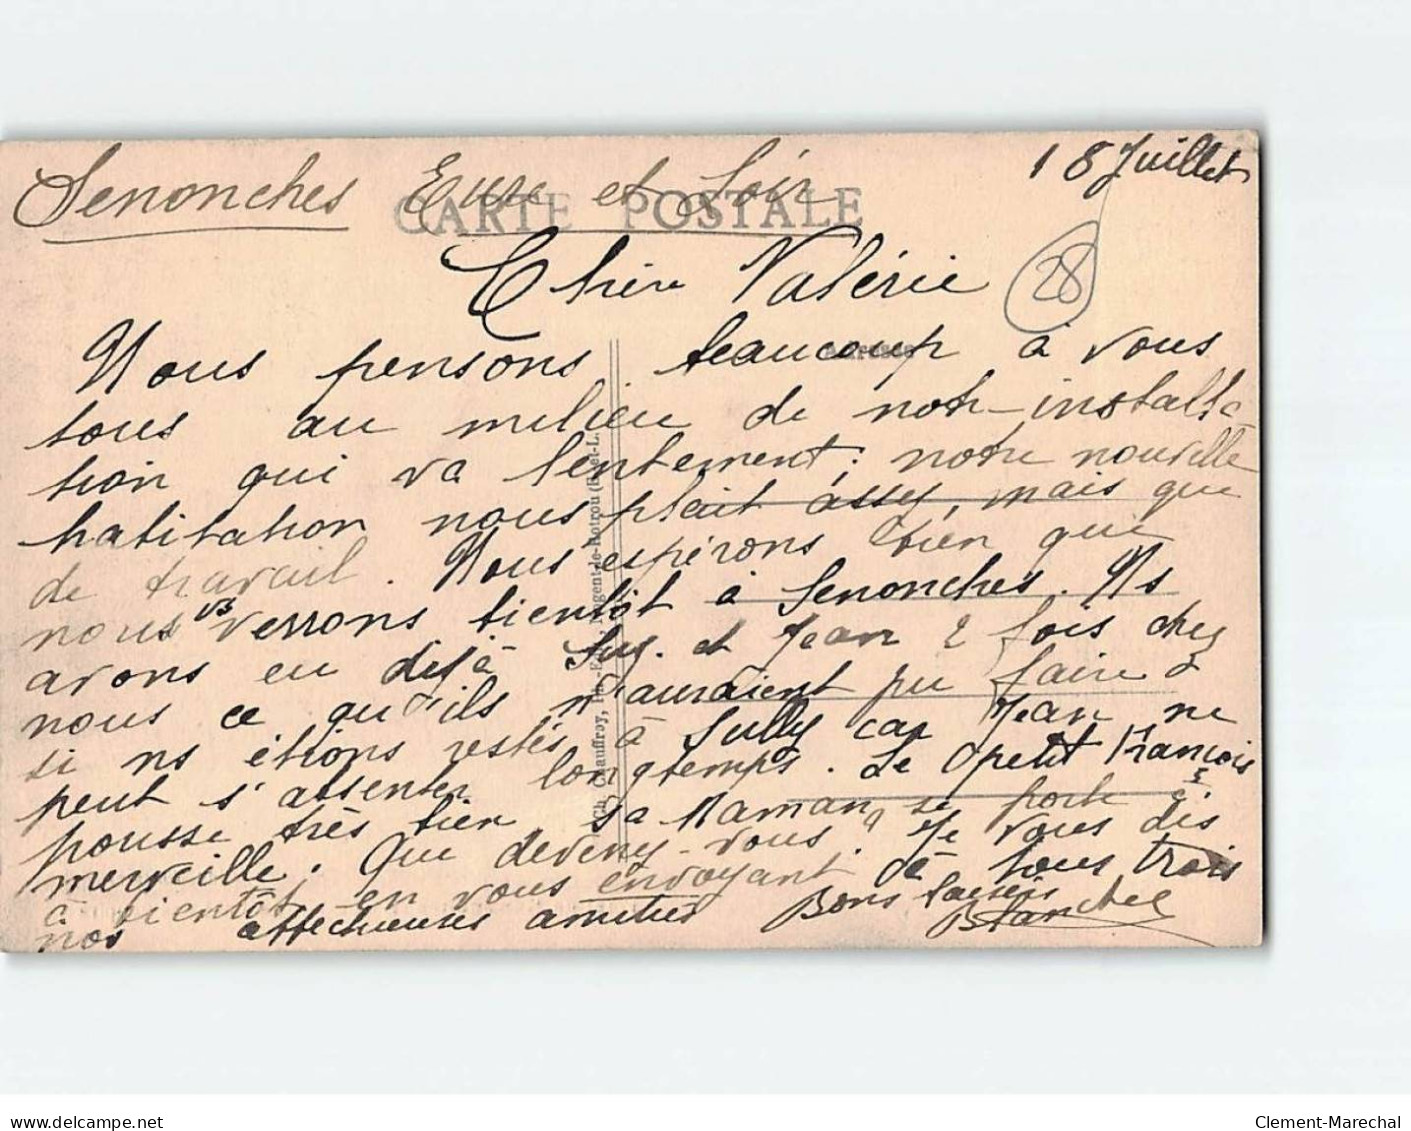 Senonches Eure et Loir 18 Juillet
CARTE POSTALE
Chère Valérie
28
Adresse
Nous pensons beaucoup à vous
tous au milieu de notre installa
tion qui va lentement ; notre nouvelle
habitation nous plait assez, mais que
de travail. Nous espérons bien que
nous vs verrons bientôt à Senonches. Ns
avons eu déjà Suz. et Jean 2 fois chez
nous ce qu'ils n'auraient pu faire
si ns étions restés à Sully car Jean ne
peut s'absenter longtemps. Le petit François
pousse très bien sa Maman se porte à
merveille. Que devenez-vous. Je vous dis
à bientôt en vous envoyant à tous trois
nos affectueuses amitiés Bons baisers
Blanche
Nogent-le-Rotrou (E.-et-L.
Clement-Marechal
www.delcampe.net